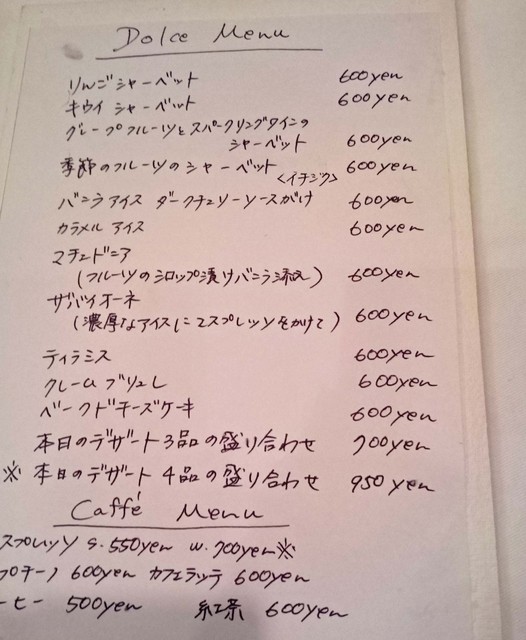 Dolce Menu
りんごシャーベット 600yen
キウイ シャーベット 600yen
グレープフルーツとスパークリングワインの
シャーベット 600yen
季節のフルーツのシャーベット 600yen
<イチジク>
バニラアイス ダークチェリーソースがけ 600yen
カラメル アイス 600yen
マチェドニア
(フルーツのシロップ漬けバニラ添え) 600yen
ザバイオーネ
(濃厚なアイスにエスプレッソをかけて) 600yen
ティラミス 600yen
クレームブリュレ 600yen
ベークドチーズケーキ 600yen
本日のデザート3品の盛り合わせ 700yen
※ 本日のデザート 4品の盛り合わせ 950yen
Caffé Menu
スプレッソ S.550yen W.700yen※
プチーノ 600yen カフェラッテ 600yen
ーヒー 500yen 紅茶 600yen